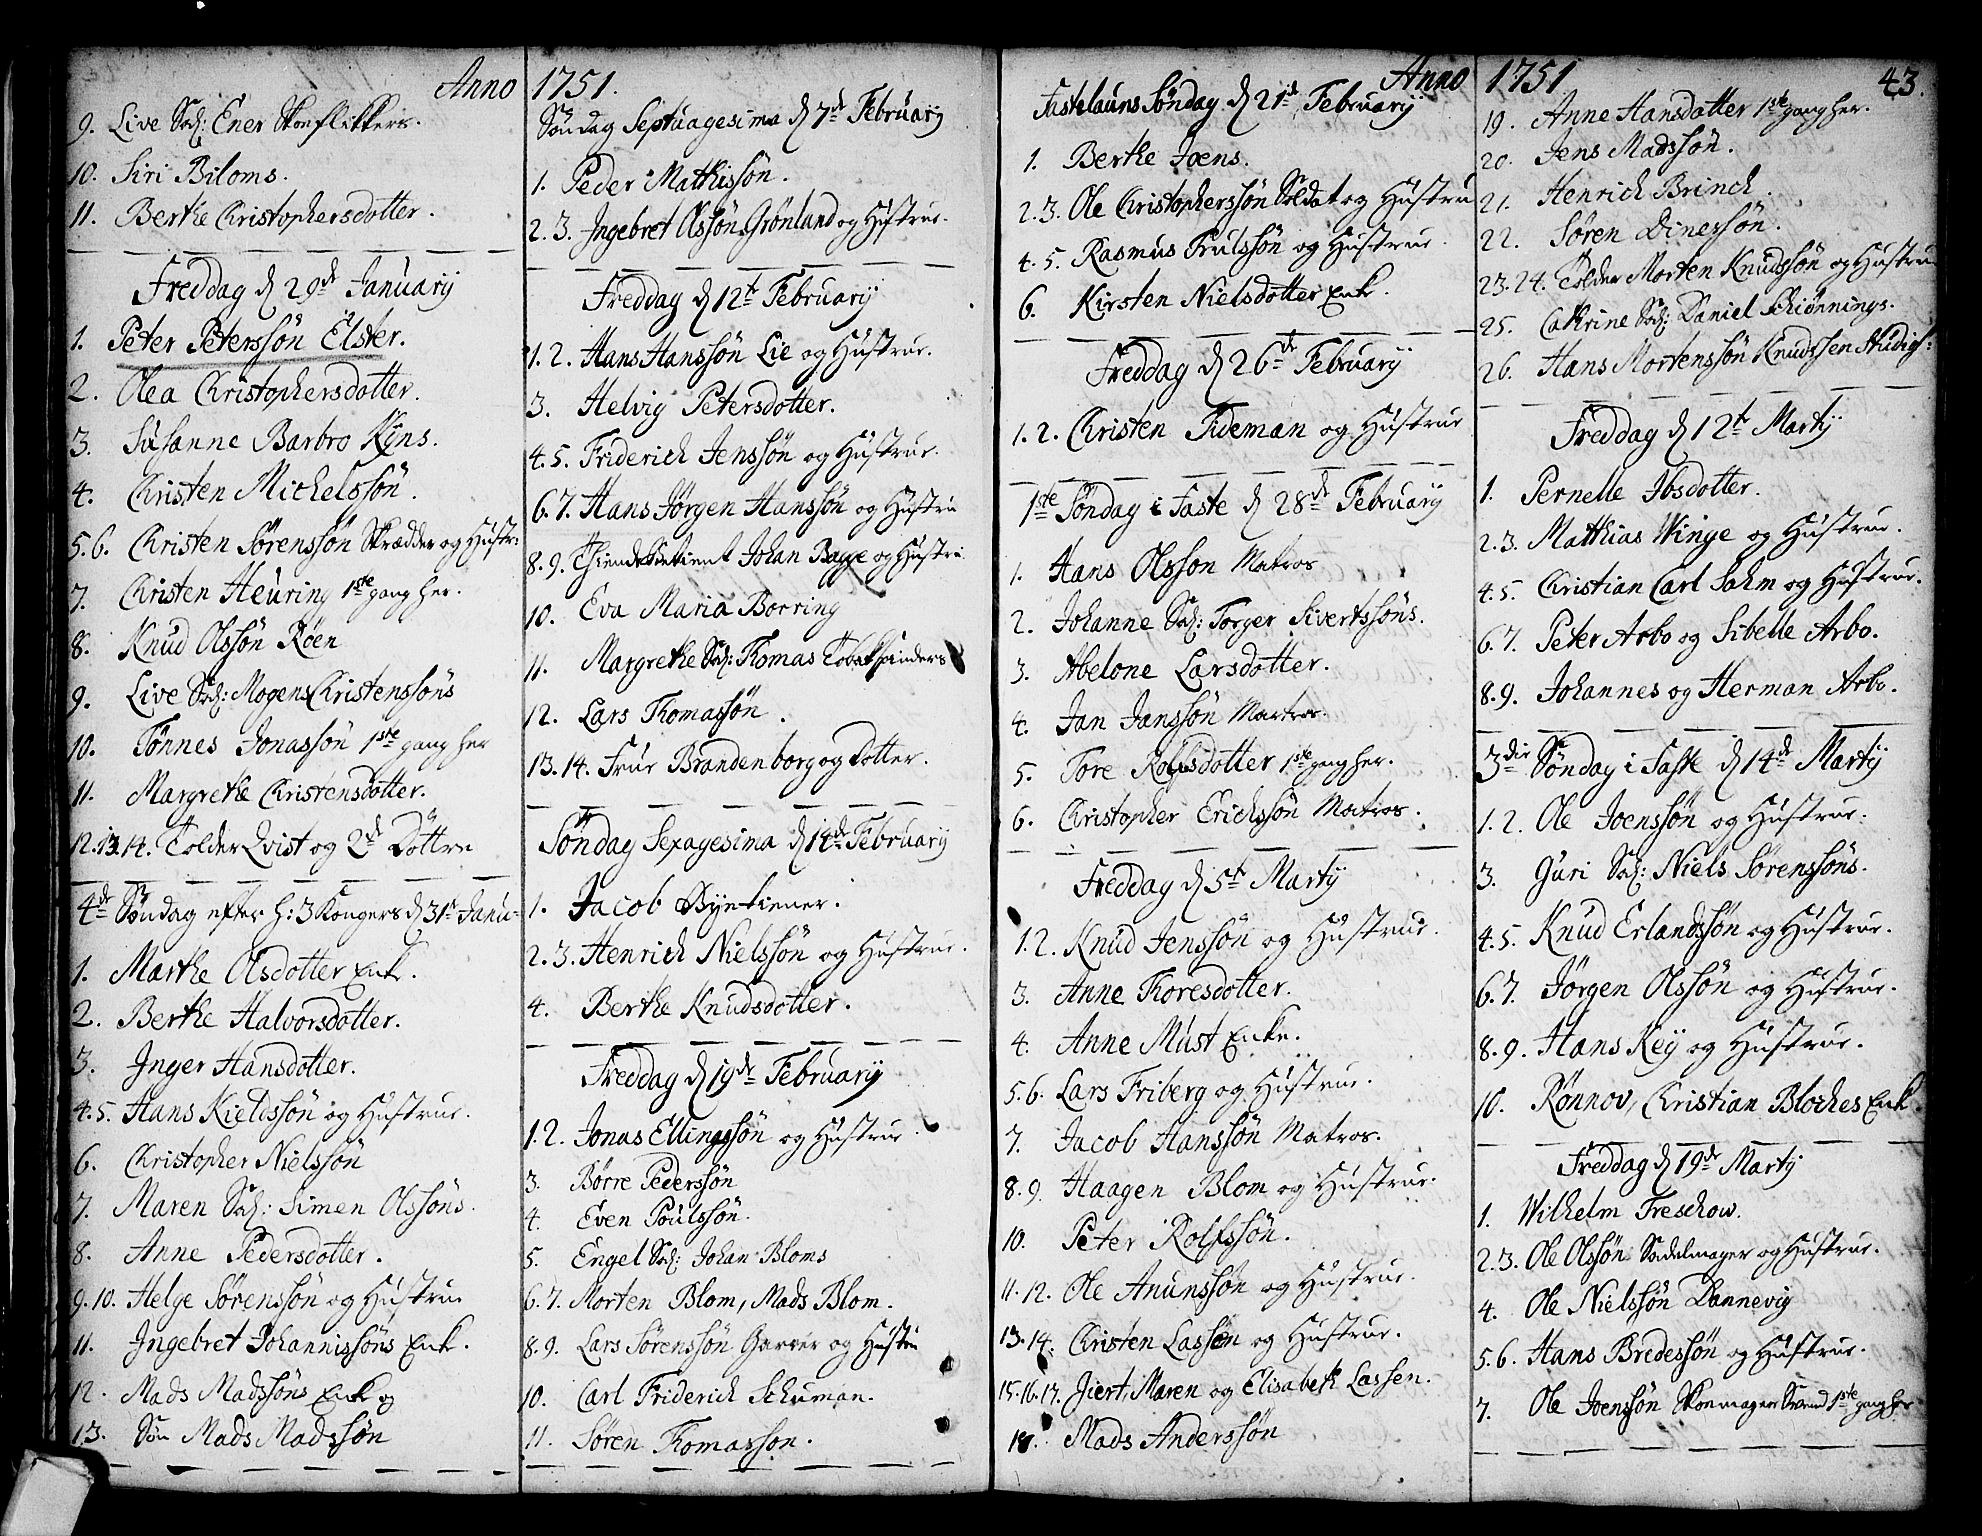 Anno 1751.
9. Live Sal: Ener Skoeflikkers.
10. Siri Biloms.
11. Berthe Christophersdotter.
Freddag d 29de Januarij
1. Peter Peterssön Elster.
2. Olea Christophersdotter.
3. Susanne Barbro Kyns.
4. Christen Michelssön.
5.6. Christen Sørenssön Skrædder og Hustru
7. Christen Heuring 1ste gang her.
8. Knud Olssön Röen
9. Live Sal: Mogens Christenssöns
10. Tönnes Jonassön 1ste gang her
11. Margrethe Christensdotter.
12.13.14. Tolder Qvist og 2de Döttre
4de Söndag efter H: 3 Kongers d 31te Janu-
1. Marthe Olsdotter Enke.
2. Berthe Halvorsdotter.
3. Inger Hansdotter.
4.5. Hans Kieldssön og Hustrue.
6. Christopher Nielssön
7. Maren Sal: Simen Olssöns.
8. Anne Pedersdotter.
9.10. Helge Sörenssön og Hustrue
11. Ingebret Johannissöns Enke.
12. Mads Madssöns Enke og
13. Sön Mads Madssön
Söndag Septuagesima d 7de Februarij
1. Peder Mathissön.
2.3. Ingebret Olssön Grönland og Hustrue.
Freddag d 12te Februarij
1.2. Hans Hanssön Lie og Hustrue.
3. Helvig Petersdotter.
4.5. Friderich Jenssön og Hustrue.
6.7. Hans Jørgen Hanssön og Hustru
8.9. Johan Bagge og Hustru
10. Eva Maria Borring
11. Margrethe Sal: Thomas Tobakspinders
12. Lars Thomassön.
13.14. Frue Brandenborg og Dotter.
Söndag Sexagesima d 14de Februarij
1. Jacob Byetiener.
2.3. Henrich Nielssön og Hustrue.
4. Berthe Knudsdotter.
Freddag d 19de Februarij
1.2. Jonas Ellingssön og Hustrue
3. Börre Pederssön
4. Even Poulssön.
5. Engel Sal: Johan Bloms
6.7. Morten Blom, Mads Blom.
8.9. Lars Sörenssön Garver og Hustru
10. Carl Friderich Schuman.
11. Sören Thomassøn.
Anno 1751 43.
Fastelauns Söndag d 21de Februarij
1. Berthe Joens.
2.3. Ole Christopherssön Soldat og Hustru
4.5. Rasmus Trulssön og Hustrue.
6. Kirsten Nielsdotter Enke.
Freddag d 26de Februarij
1.2. Christen Tideman og Hustrue
1ste Söndag i Faste d 28de Februarij
1. Hans Olsson Matros
2. Johanne Sal: Torger Sivertssöns.
3. Abelone Larsdotter.
4. Jan Janssön Matros.
5. Tore Rolfsdotter 1ste gang her.
6. Christopher Erichssön Matros.
Freddag d 5te Martij
1.2. Knud Jenssön og Hustrue.
3. Anne Thoresdotter.
4. Anne Must Enke.
5.6. Lars Friberg og Hustrue.
7. Jacob Hanssön Matros.
8.9. Haagen Blom og Hustrue.
10. Peter Rolfssön.
11.12. Ole Anunssön og Hustrue.
13.14. Christen Lassen og Hustrue.
15.16.17. Jiert, Maren og Elisabeth Lassen.
18. Mads Anderssön
19. Anne Hansdotter 1ste gang her.
20. Jens Madssön.
21. Henrich Brinch.
22. Sören Dinerssön.
23.24. Tolder Morten Knudssön og Hustrue
25. Cathrine Sal: Daniel Schiönnings.
26. Hans Mortenssön Knudssen Studios:
Freddag d 12te Martij
1. Pernelle Ibsdotter.
2.3. Matthias Winge og Hustrue.
4.5. Christian Carl Sahm og Hustrue.
6.7. Peter Arbo og Sibelle Arbo.
8.9. Johannes og Herman Arbo.
3die Söndag i Faste d 14de Martij
1.2. Ole Joenssön og Hustrue.
3. Guri Sal: Niels Sörenssöns.
4.5. Knud Erlandssön og Hustrue.
6.7. Jörgen Olssön og Hustrue.
8.9. Hans Key og Hustrue.
10. Rønnov, Christian Bloches Enke
Freddag d 19de Martij
1. Wilhelm Treschow.
2.3. Ole Olssön Sadelmager og Hustrue.
4. Ole Nielssön Dannevig
5.6. Hans Bredessön og Hustrue.
7. Ole Joenssön Skoemager Svend 1ste gang her